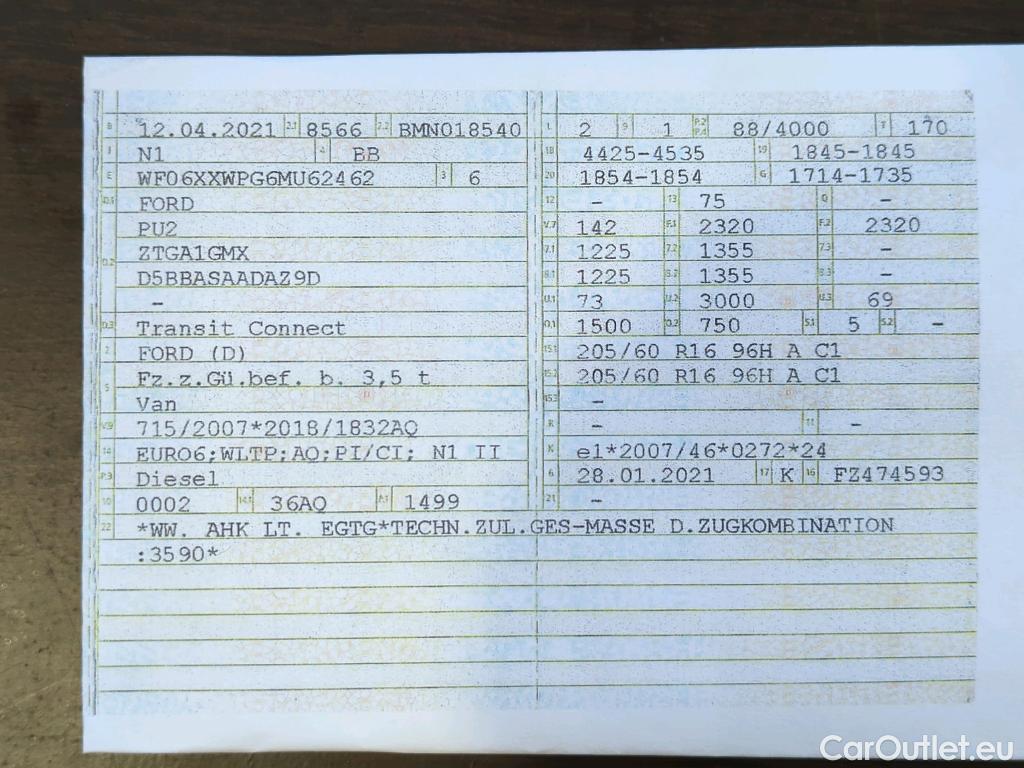 B 12.04.2021 2.1 8566 2.2 BMN018540
J N1 4 BB
E WF06XXWPG6MU62462 3 6
D.1 FORD
PU2
D.2 ZTGA1GMX
D5BBASAADAZ9D
-
D.3 Transit Connect
2 FORD (D)
5 Fz.z.Gü.bef. b. 3,5 t
Van
V.9 715/2007*2018/1832AQ
14 EURO6;WLTP;AQ;PI/CI; N1 II
P.3 Diesel
10 0002 14.1 36AQ P.1 1499
L 2 9 1 P.2 P.4 88/4000 T 170
18 4425-4535 19 1845-1845
20 1854-1854 G 1714-1735
12 - 13 75 Q -
V.7 142 F.1 2320 F.2 2320
7.1 1225 7.2 1355 7.3 -
8.1 1225 8.2 1355 8.3 -
U.1 73 U.2 3000 U.3 69
O.1 1500 O.2 750 S.1 5 S.2 -
15.1 205/60 R16 96H A C1
15.2 205/60 R16 96H A C1
15.3 -
R - 11 -
K e1*2007/46*0272*24
6 28.01.2021 17 K 16 FZ474593
21 -
22 *WW. AHK LT. EGTG*TECHN.ZUL.GES-MASSE D.ZUGKOMBINATION
:3590*
CarOutlet.eu